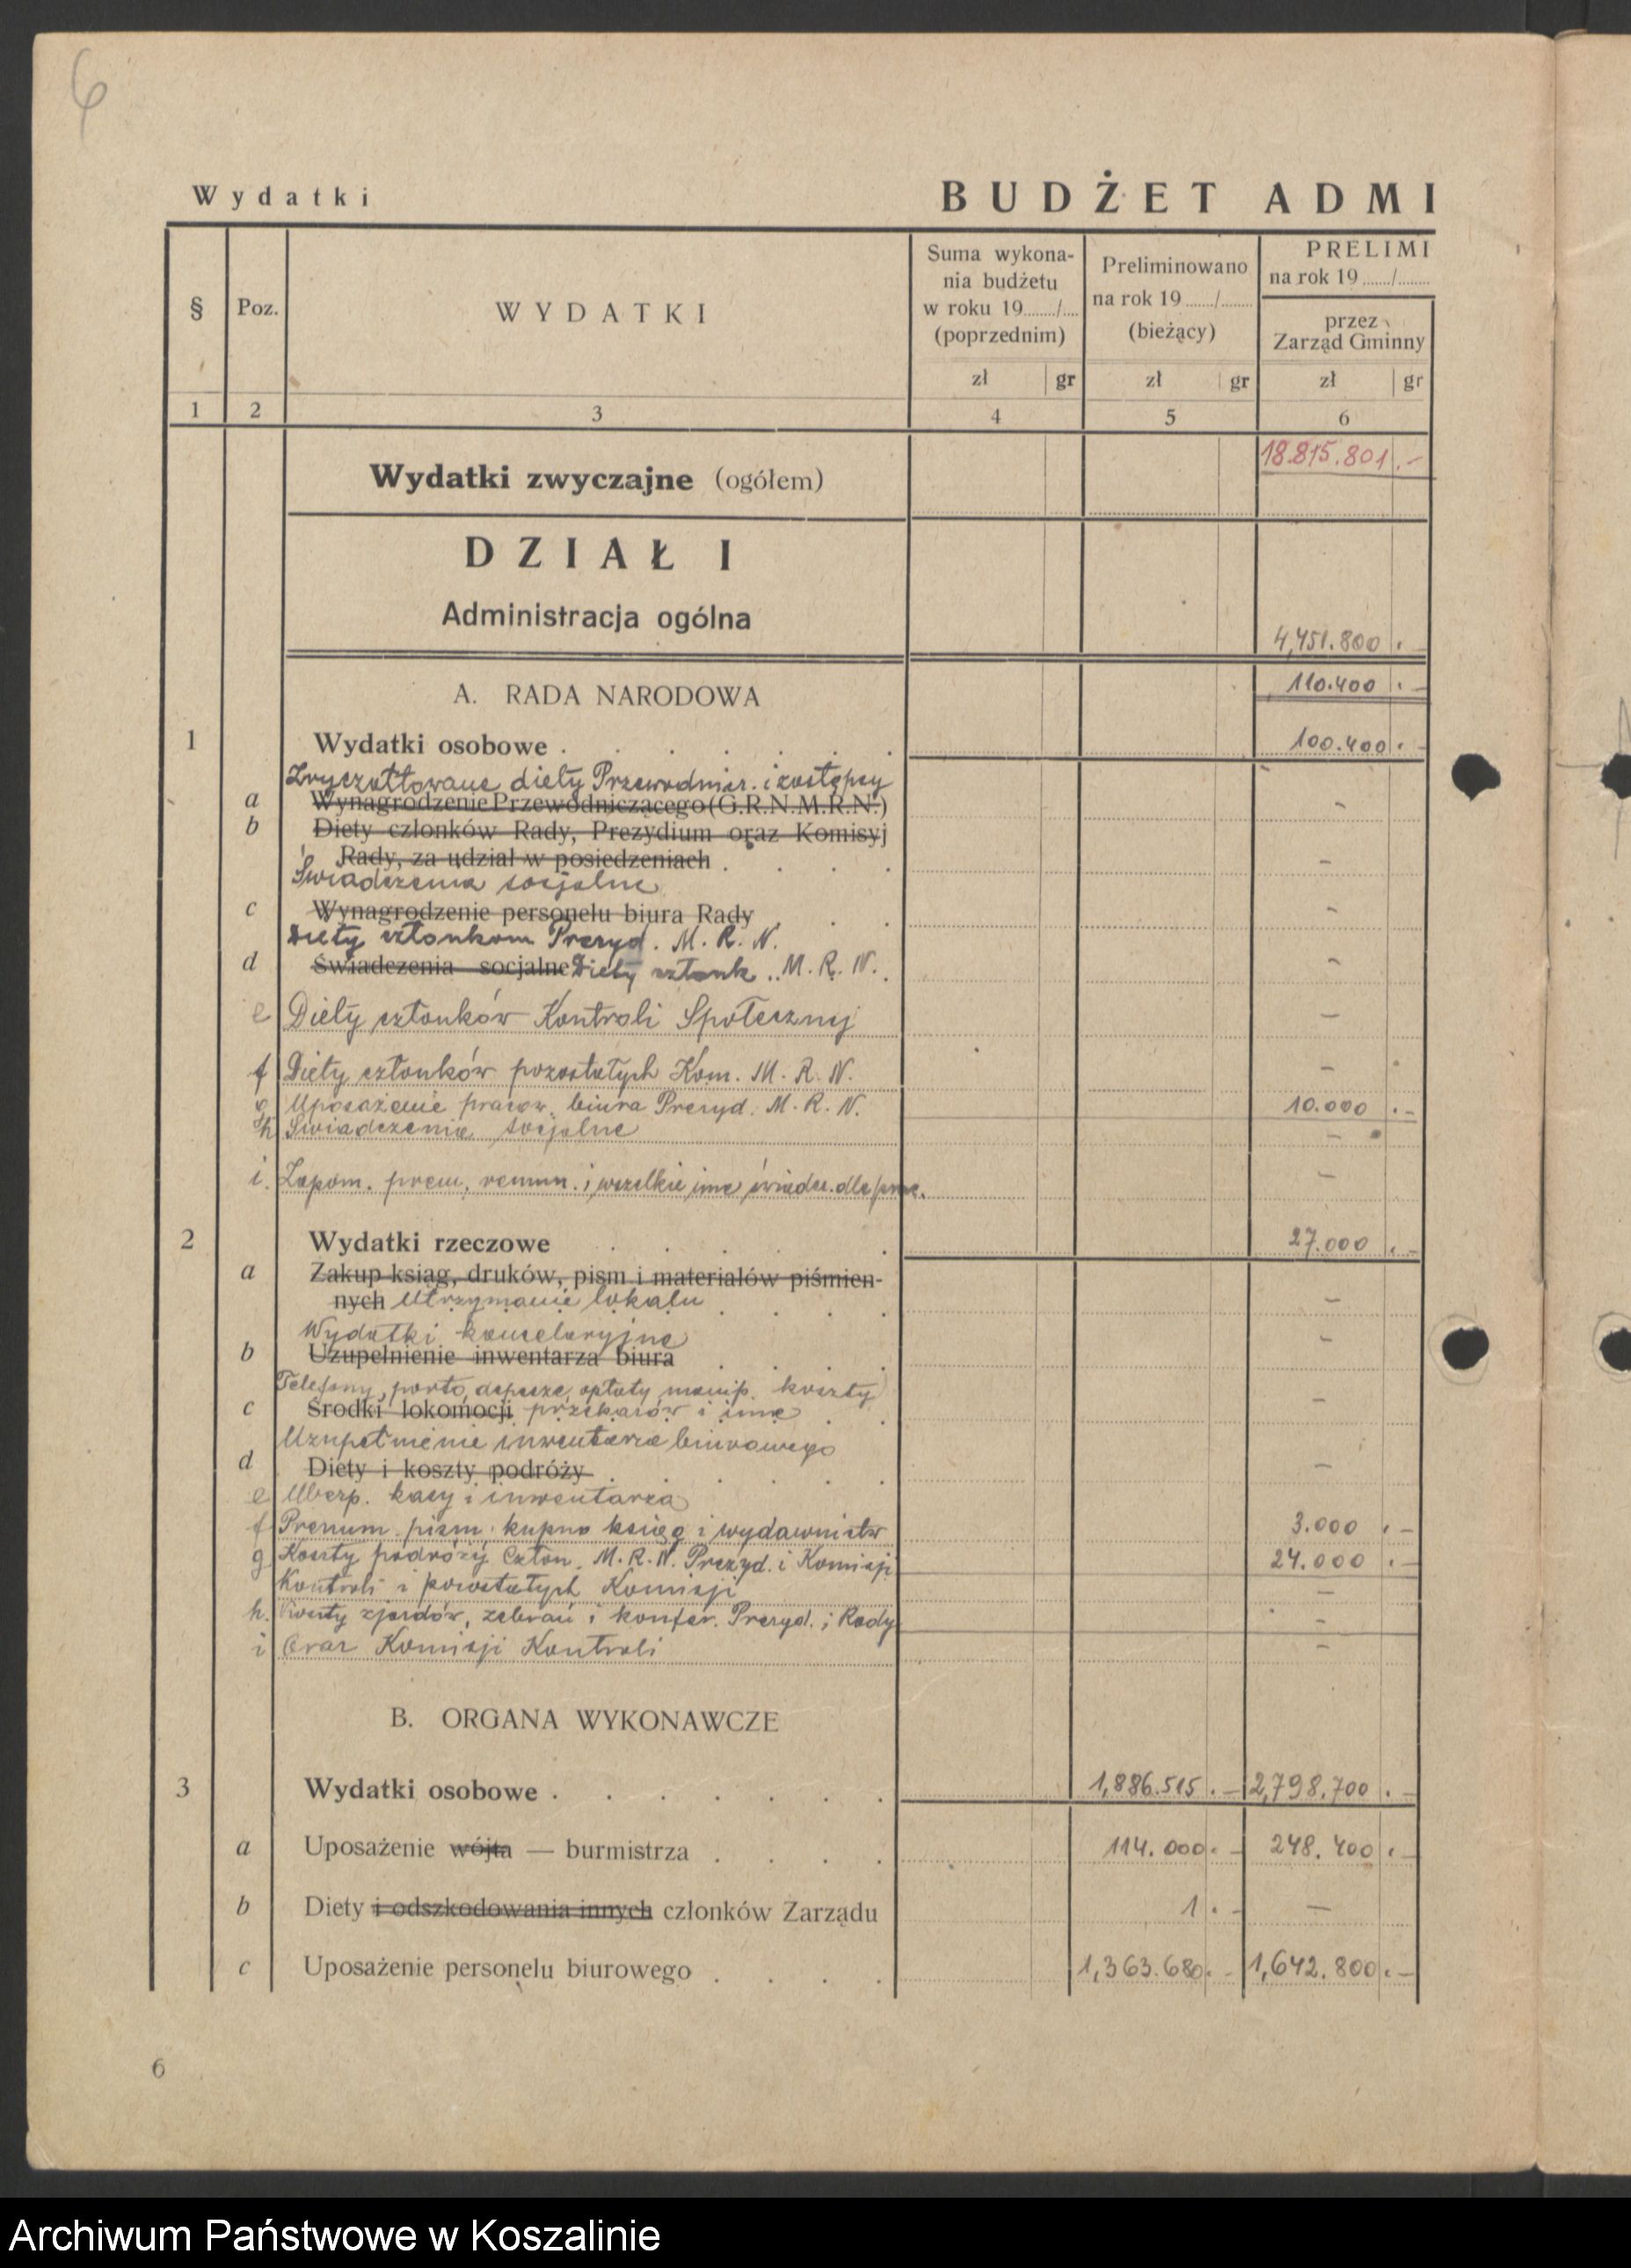 6
Wydatki
BUDŻET ADMI
§ Poz. WYDATKI
Suma wykona-
nia budżetu
w roku 19....../....
(poprzednim)
Preliminowano
na rok 19....../......
(bieżący)
PRELIMI
na rok 19....../......
przez
Zarząd Gminny
zł gr zł gr zł gr
1 2 3 4 5 6
18.815.801.-
Wydatki zwyczajne (ogółem)
DZIAŁ I
Administracja ogólna
4,751.800.-
A. RADA NARODOWA 110.400.-
1 Wydatki osobowe . 100.400.-
Zryczałtowane diety Przewodnicz. i zastępcy
a Wynagrodzenie Przewodniczącego (G.R.N.M.R.N.) -
b Diety członków Rady, Prezydium oraz Komisyj
Rady, za udział w posiedzeniach . -
Świadczenia socjalne
c Wynagrodzenie personelu biura Rady -
Diety członkom Prezyd. M. R. N.
d Świadczenia socjalne Diety członk. M. R. N. -
e Diety członków Kontroli Społecznej -
f Diety członków pozostałych Kom. M. R. N. -
g Uposażenie pracow. biura Prezyd. M. R. N. 10.000.-
h Świadczenia socjalne -
i. Zapom. prem. remun. i wszelkie inne świadcz. dla prac. -
2 Wydatki rzeczowe 27.000.-
a Zakup ksiąg, druków, pism i materiałów piśmien-
nych Utrzymanie lokalu -
Wydatki kancelaryjne -
b Uzupełnienie inwentarza biura
Telefony, porto, depesze, opłaty manip. koszty
c Środki lokomocji przekazów i inne -
Uzupełnienie inwentarza biurowego
d Diety i koszty podróży -
e Ubezp. kasy i inwentarza
f Prenum. pism. kupno ksiąg i wydawnictw 3.000.-
g Koszty podróży Człon. M. R. N. Prezyd. i Komisji 24.000.-
Kontroli i pozostałych Komisji -
h. Koszty zjazdów, zebrań i konfer. Prezyd. i Rady -
i Oraz Komisji Kontroli -
B. ORGANA WYKONAWCZE
3 Wydatki osobowe . 1,886.515.- 2,798.700.-
a Uposażenie wójta — burmistrza . 114.000.- 248.400.-
b Diety i odszkodowania innych członków Zarządu 1.- -
c Uposażenie personelu biurowego . 1,363.680.- 1,642.800.-
6
Archiwum Państwowe w Koszalinie